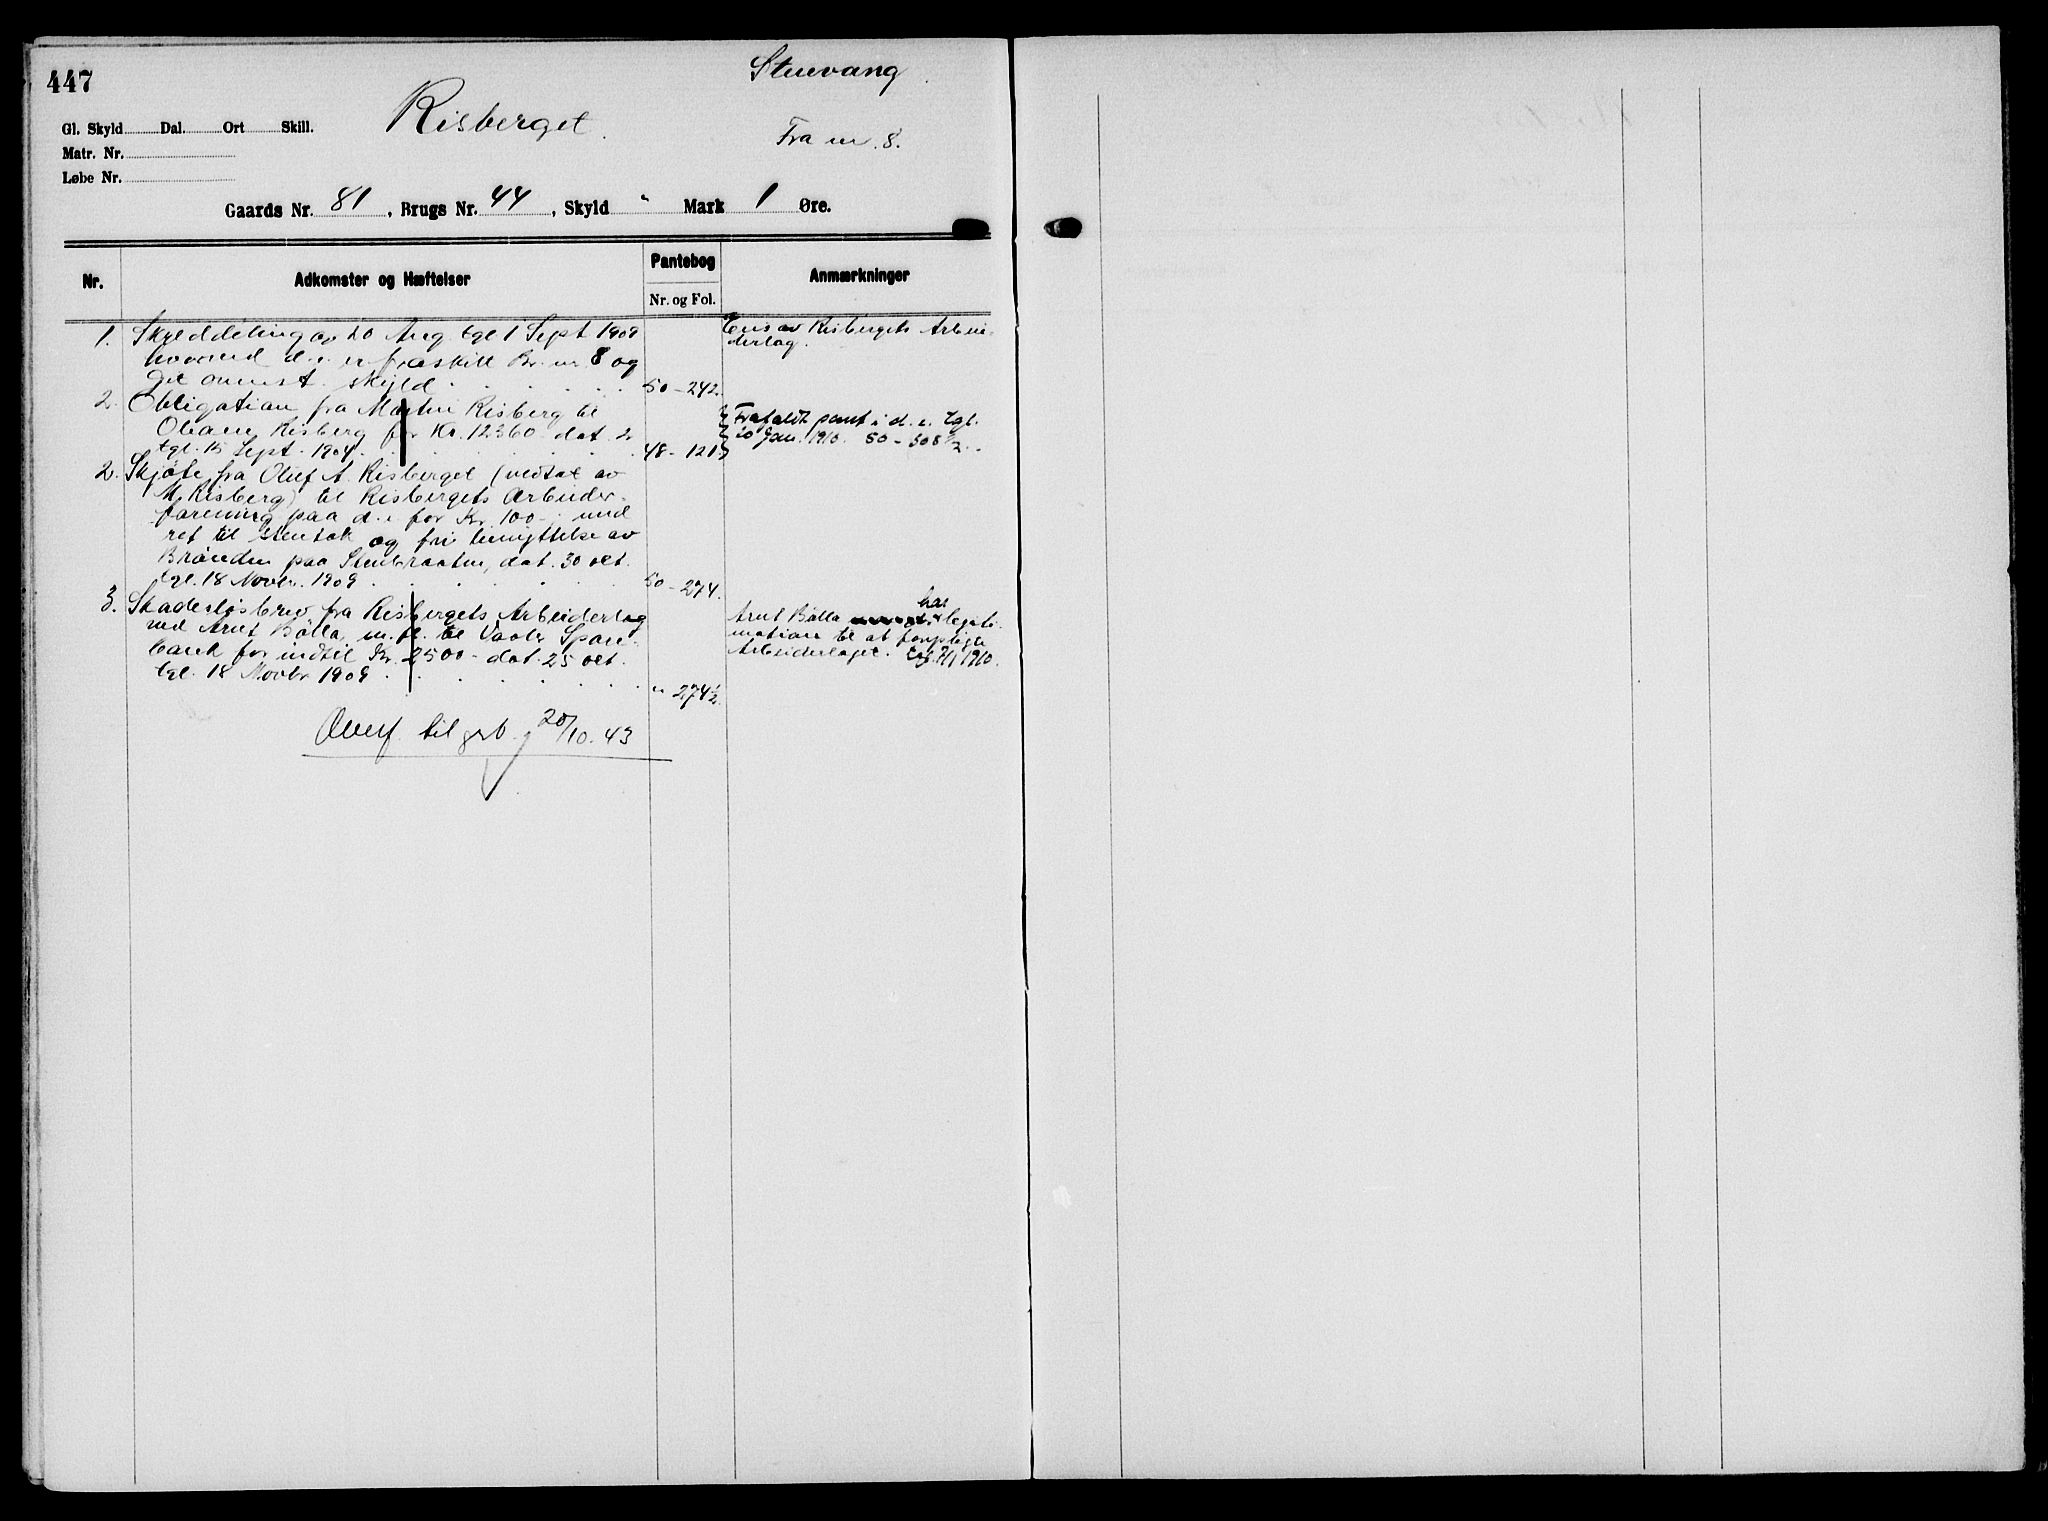 447
Stenvang
Risberget.
Fra nr. 8.
Gl. Skyld Dal. Ort Skill.
Matr. Nr.
Løbe Nr.
Gaards Nr. 81, Brugs Nr. 44, Skyld " Mark 1 Øre.
Nr. Adkomster og Hæftelser Pantebog Anmærkninger
Nr. og Fol.
1. Skylddeling av 20 Aug. tgl 1 Sept 1909
hvorved d. e. er fraskilt Br. nr 8 og
git ovenst. skyld 50-242.
Eies av Risbergets Arbei-
derlag.
2. Obligation fra Martin Risberg til
Oliane Risberg for Kr. 12360 dat. 2
tgl. 15 Sept. 1904 48-121
Frafaldt pant i d. e. tgl.
20 Jan. 1910. 50-308 1/2.
2. Skjøte fra Oluf A. Risberget (vedtat av
M. Risberg) til Risbergets Arbeider-
forening paa d. e for Kr. 100- med
ret til stentak og fri benyttelse av
Brønden paa Stenbraaten, dat. 30 okt.
tgl. 18 Novbr. 1909 50-274.
3. Skadesløsbrev fra Risbergets Arbeiderlag
ved Arnt Bölla m. fl. til Vaaler Spare-
bank for indtil Kr. 2500- dat. 25 okt.
tgl. 18 Novbr 1909 " 274 1/2.
har
Arnt Bölla legiti-
mation til at forpligte
Arbeiderlaget. tgl. 7/1 1910.
Overf til grb. 20/10. 43